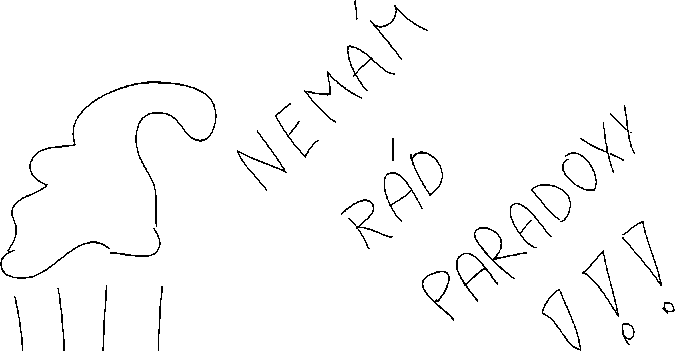 NEMÁM
RÁD
PARADOXY
!!!